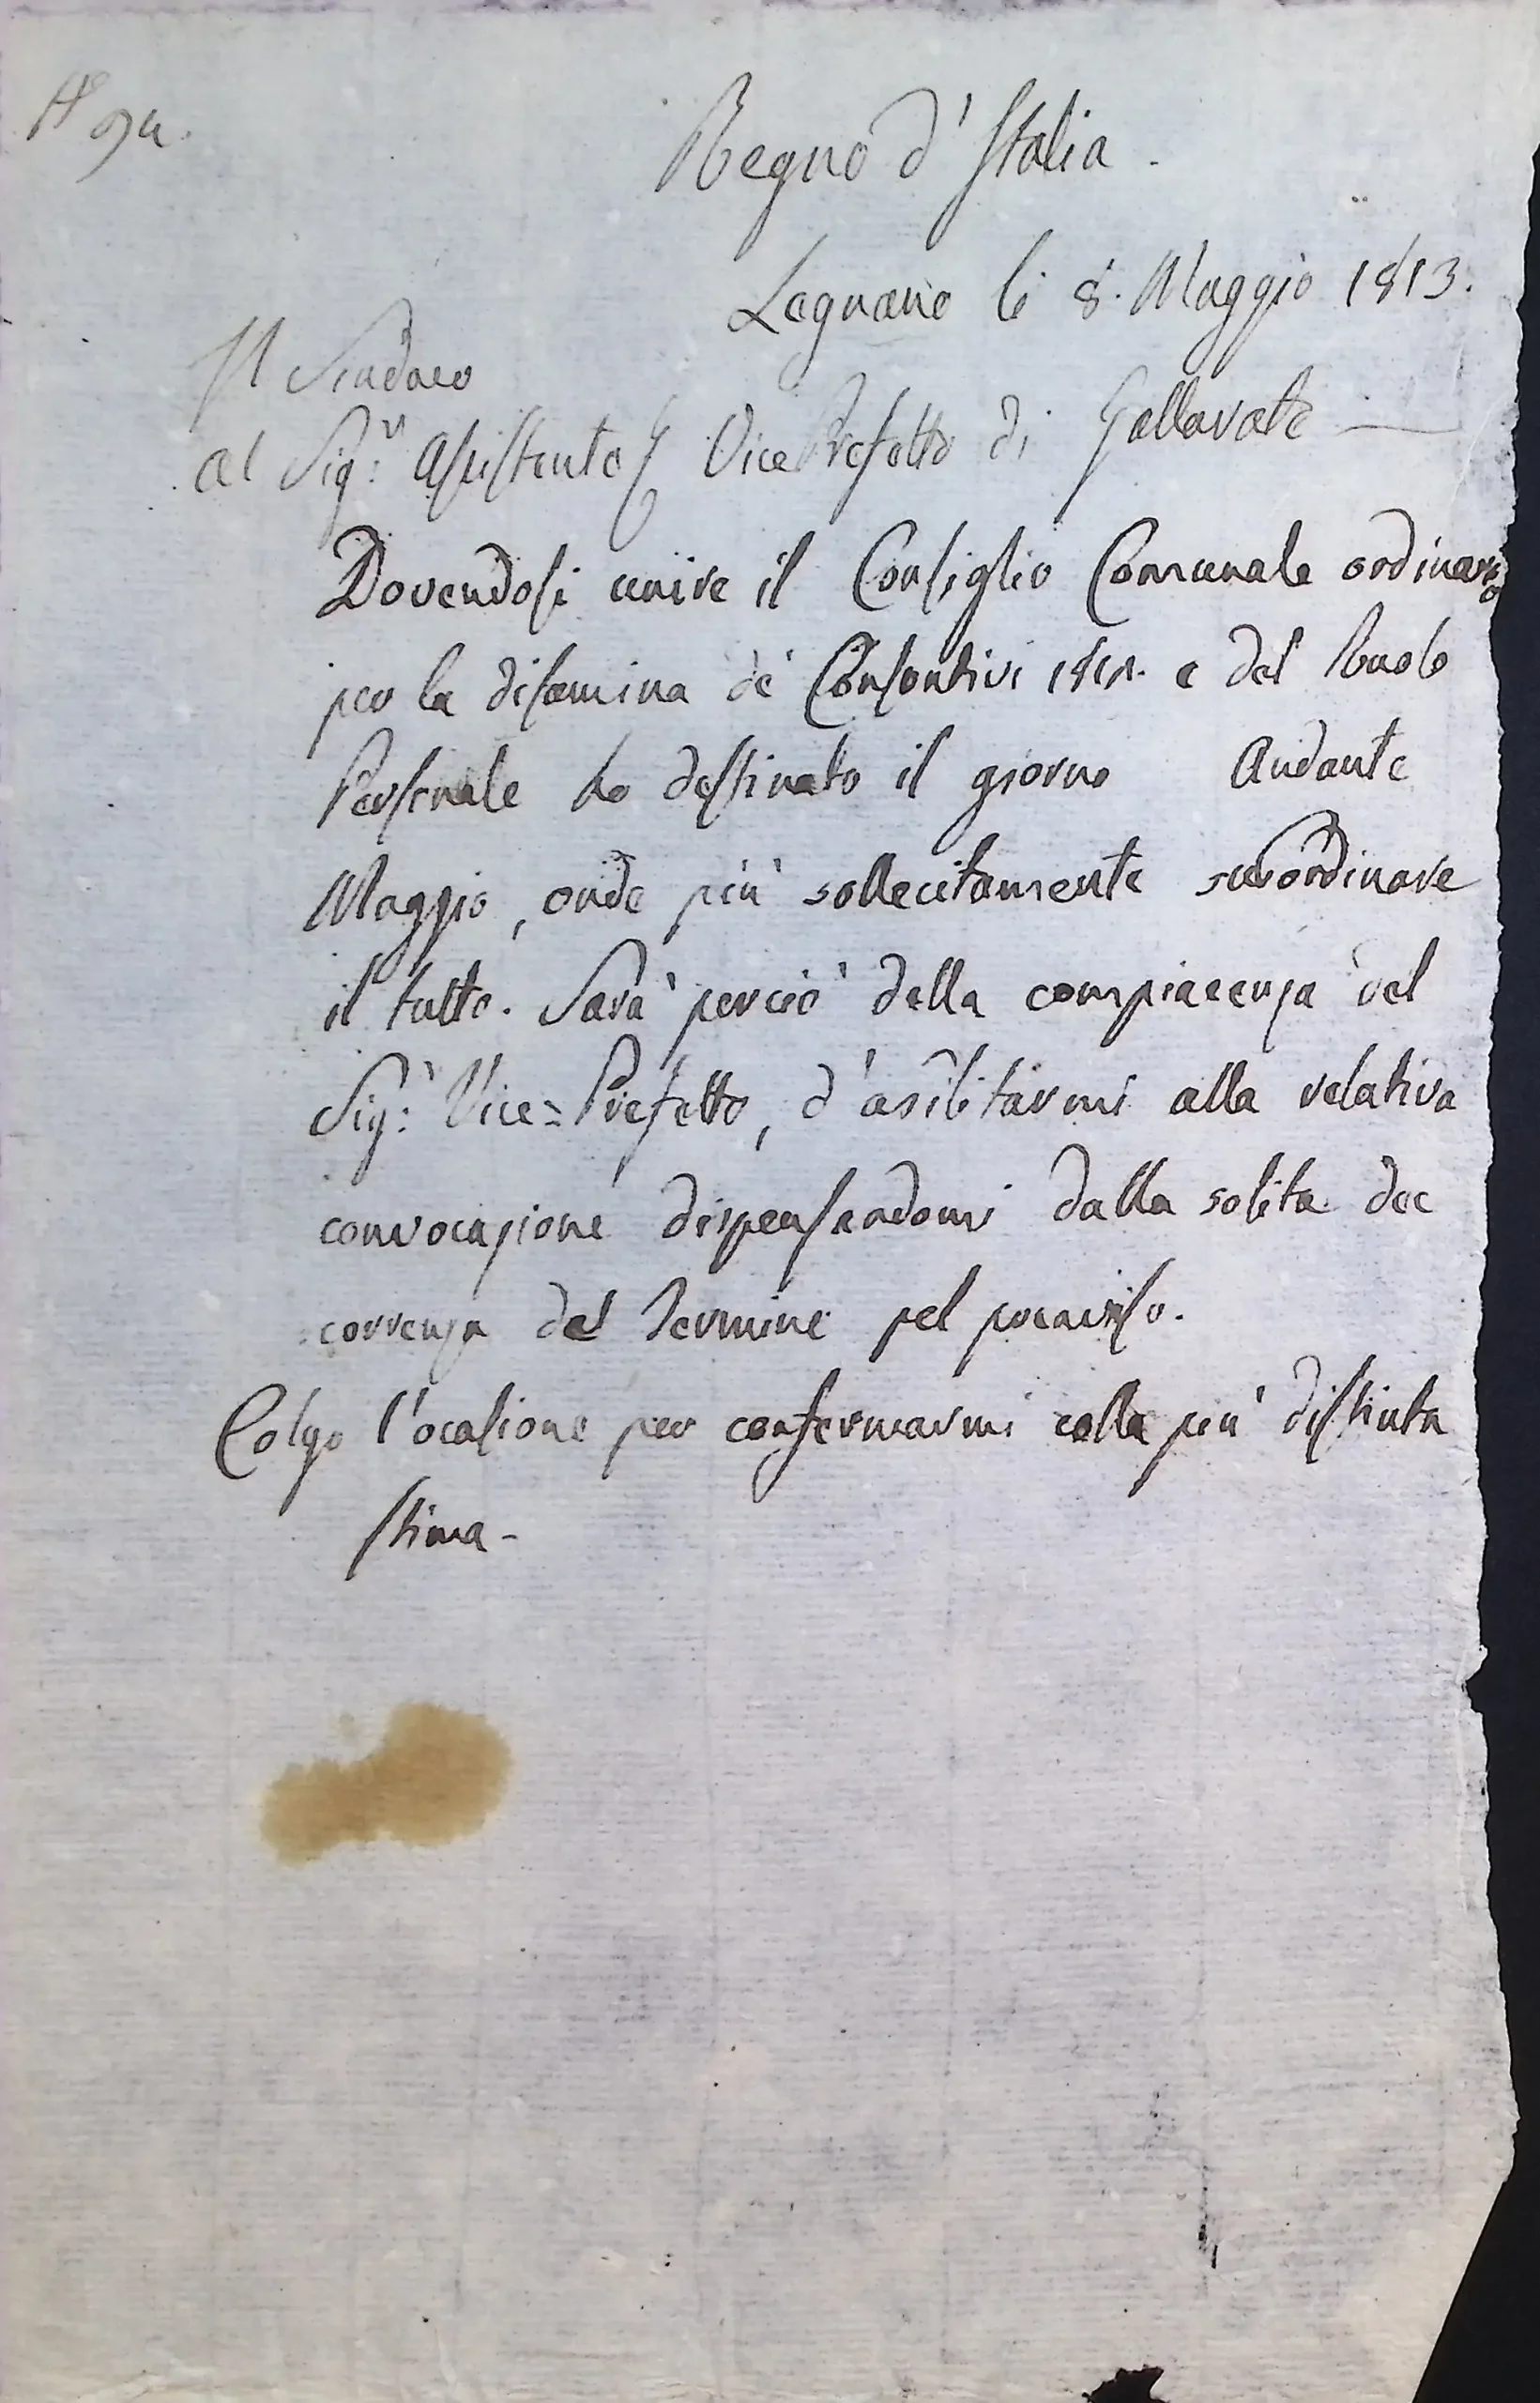 Regno d'Italia.
Legnano li 8. Maggio 1813.
Il Sindaco
Al Sig.r Assistente Vice Prefetto di Gallarate
Dovendosi unire il Consiglio Comunale ordinario
per la disamina de' Consontivi 1812. e del Ruolo
Personale ho destinato il giorno Andante
Maggio, onde più sollecitamente subordinare
il tutto. Sarà perciò della compiacenza del
Sig.r Vice=Prefetto, d'abilitarmi alla relativa
convocazione dispensandomi dalla solita dec
correnza del Termine pel preaviso.
Colgo l'ocasione per confermarmi colla più distinta
stima -